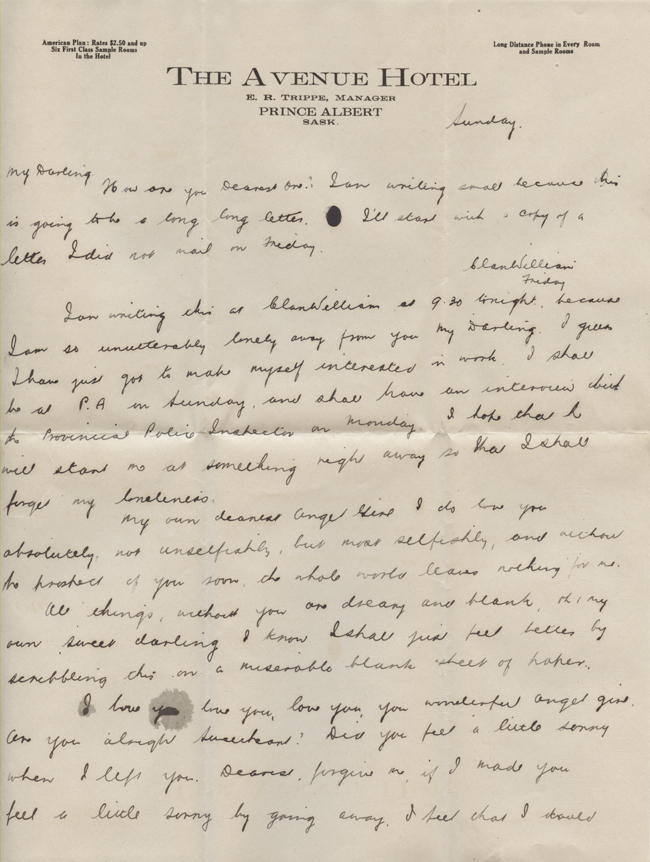 American Plan: Rates $2.50 and up
Six First Class Sample Rooms
In the Hotel
Long Distance Phone in Every Room
and Sample Rooms
THE AVENUE HOTEL
E. R. TRIPPE, MANAGER
PRINCE ALBERT
SASK.
Sunday.
My Darling
How are you Dearest One? I am writing small because this
is going to be a long long letter. I'll start with a copy of a
letter I did not mail on Friday.
ClanWilliam
Friday
I am writing this at ClanWilliam at 9.30 tonight, because
I am so unutterably lonely away from you My Darling. I guess
I have just got to make myself interested in work. I shall
be at P.A on Sunday, and shall have an interview with
the Provincial Police Inspector on Monday I hope that he
will start me at something right away so that I shall
forget my loneliness.
My own dearest Angel Girl I do love you
absolutely, not unselfishly, but most selfishly, and without
the prospect of you soon, the whole world leaves nothing for me.
All things, without you are dreary and blank, oh! my
own sweet darling I know I shall just feel better by
scribbling this on a miserable blank sheet of paper.
I love you love you, love you, you wonderful angel girl.
Are you alright Sweetheart? Did you feel a little sorry
when I left you. Dearest, forgive me, if I made you
feel a little sorry by going away. I feel that I should